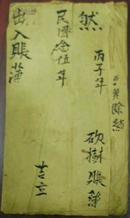 然
丙子年
砍樹賬簿
民國念伍年
吉立
出入賬簿